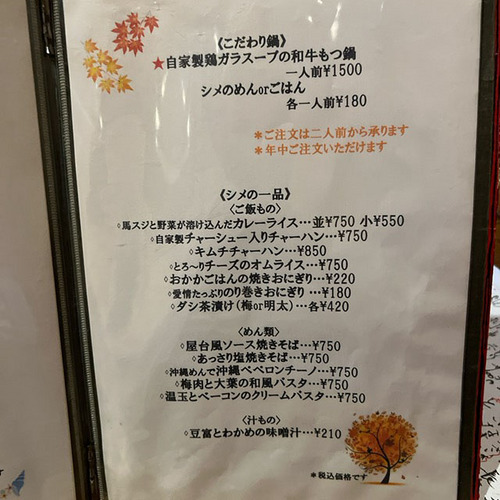 《こだわり鍋》
★自家製鶏ガラスープの和牛もつ鍋
一人前¥1500
シメのめんorごはん
各一人前¥180
＊ご注文は二人前から承ります
＊年中ご注文いただけます
《シメの一品》
〈ご飯もの〉
◇馬スジと野菜が溶け込んだカレーライス…並¥750 小¥550
◇自家製チャーシュー入りチャーハン…¥750
◇キムチチャーハン…¥850
◇とろ～りチーズのオムライス…¥750
◇おかかごはんの焼きおにぎり…¥220
◇愛情たっぷりのり巻きおにぎり …¥180
◇ダシ茶漬け(梅or明太)…各¥420
〈めん類〉
◇屋台風ソース焼きそば…¥750
◇あっさり塩焼きそば…¥750
◇沖縄めんで沖縄ペペロンチーノ…¥750
◇梅肉と大葉の和風パスタ…¥750
◇温玉とベーコンのクリームパスタ…¥750
〈汁もの〉
◇豆富とわかめの味噌汁…¥210
＊税込価格です